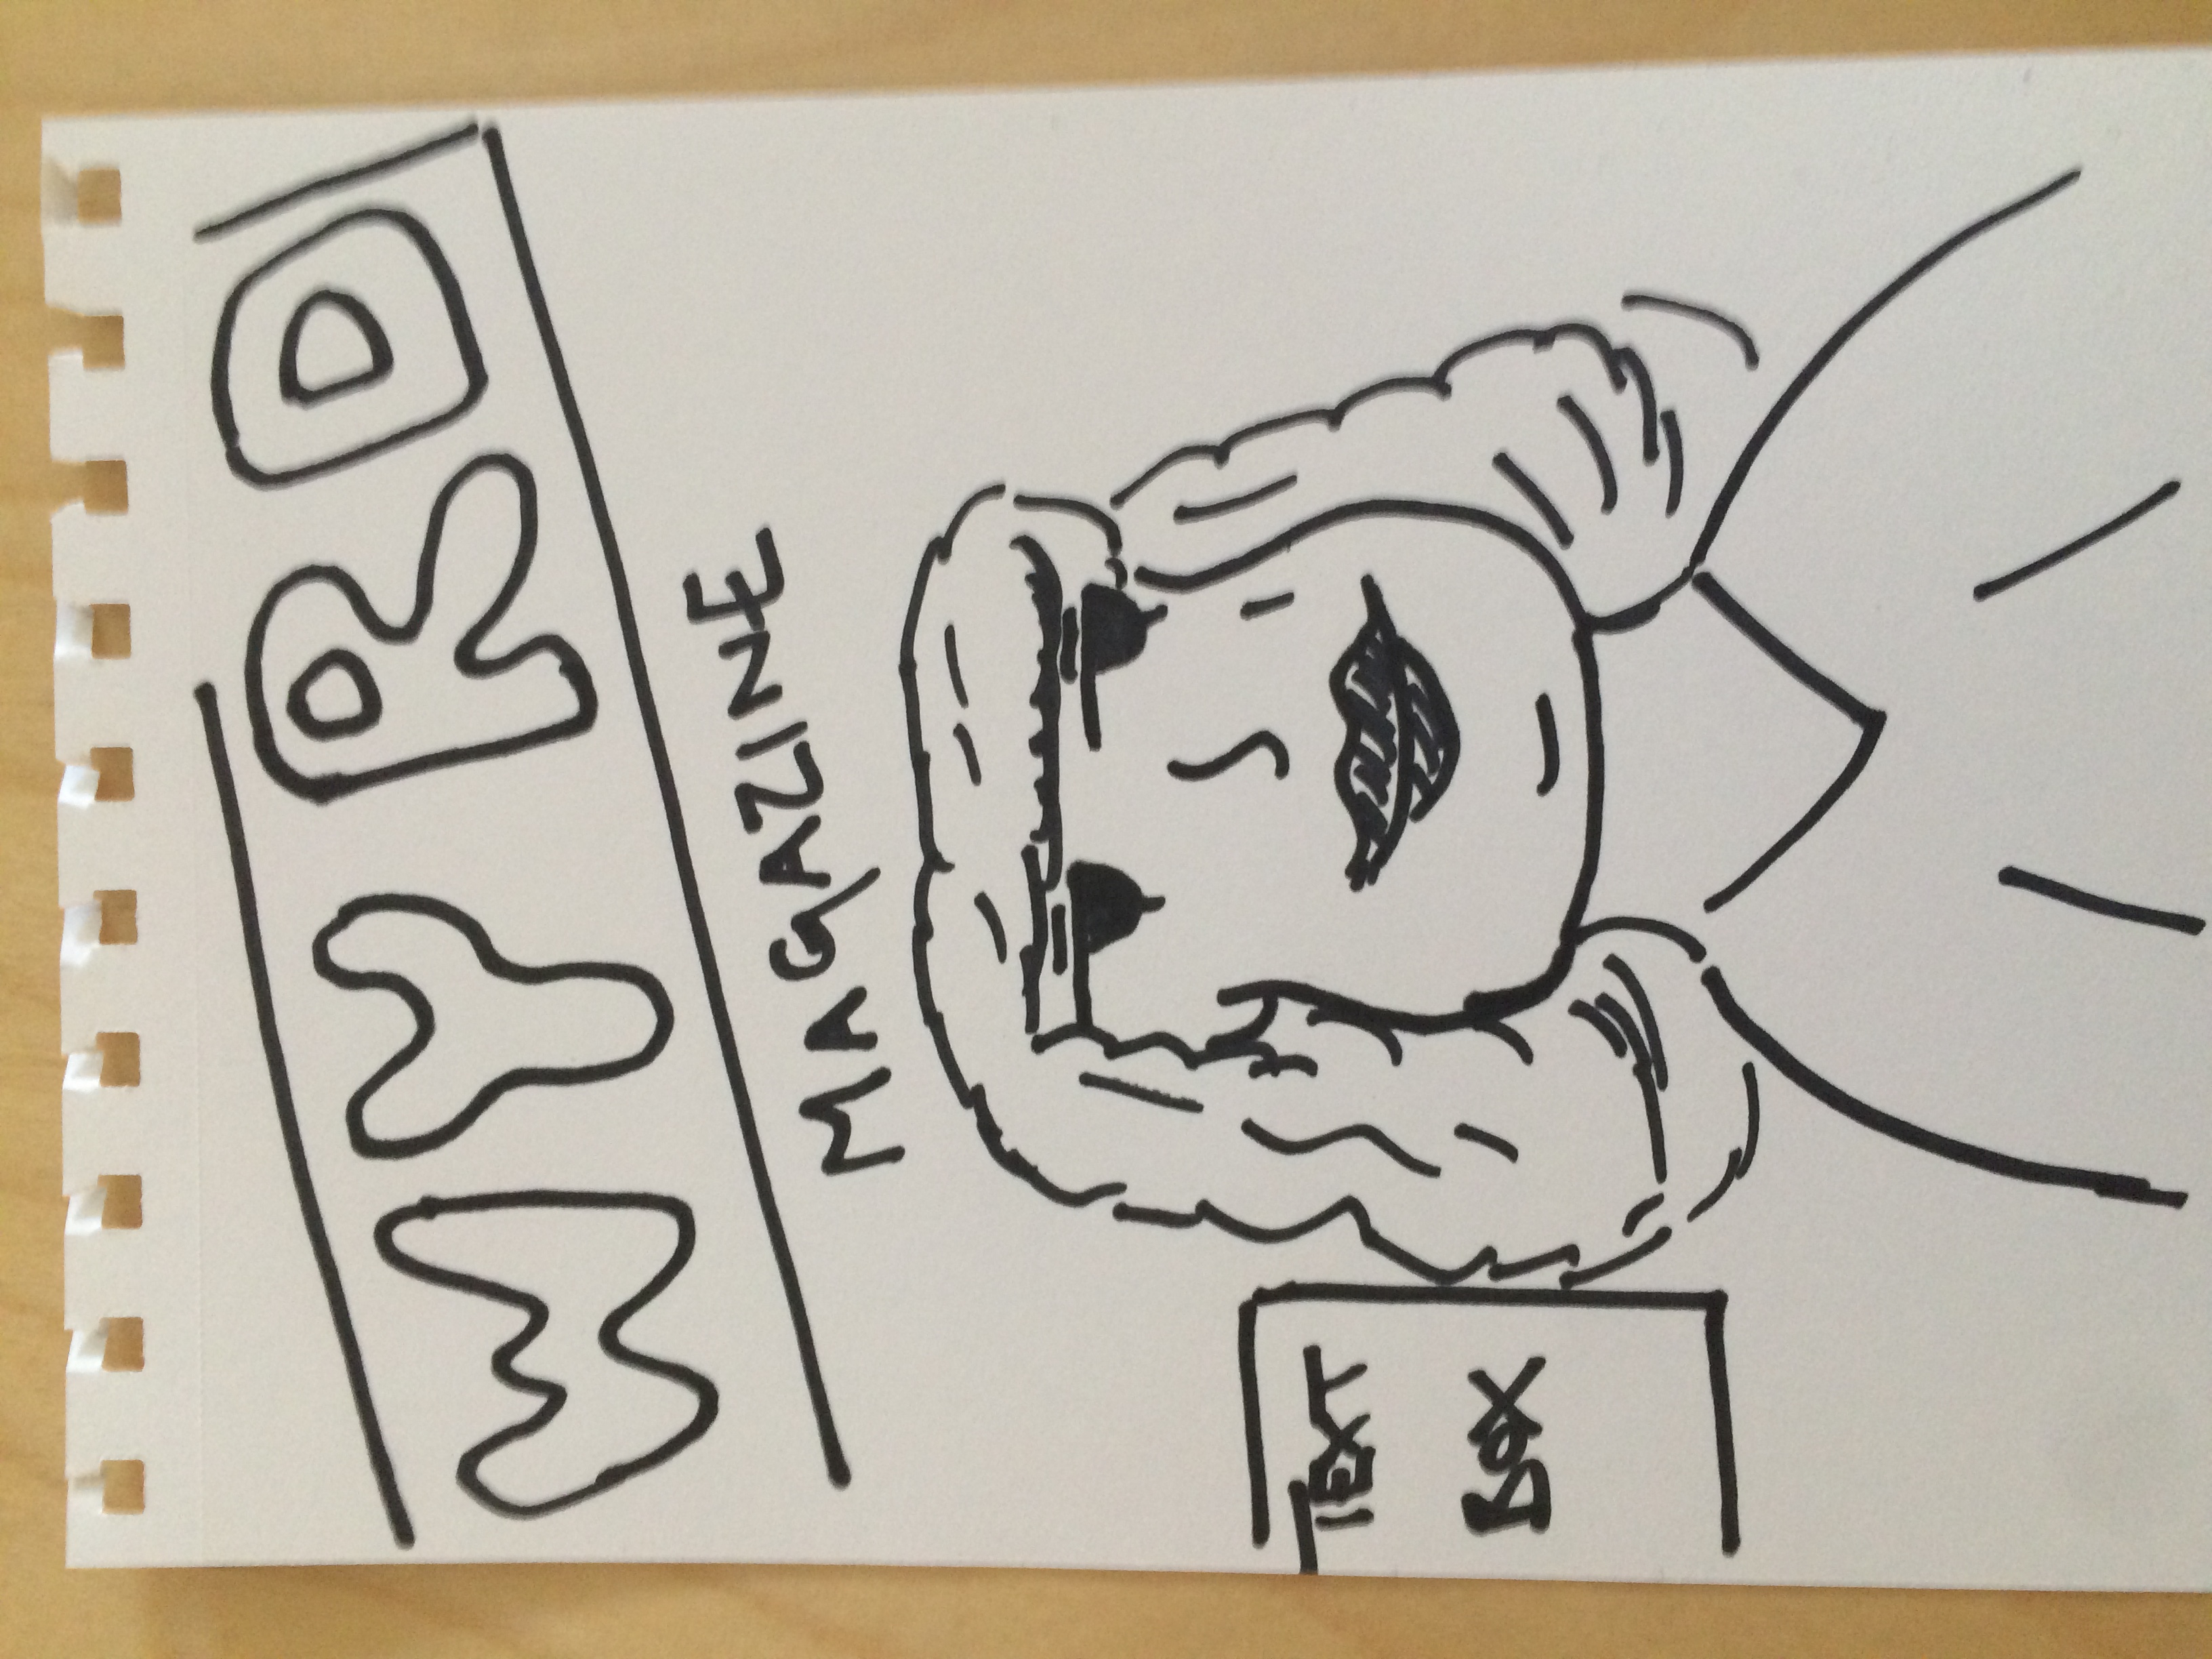 WYRD
MAGAZINE
TEXT
BOX